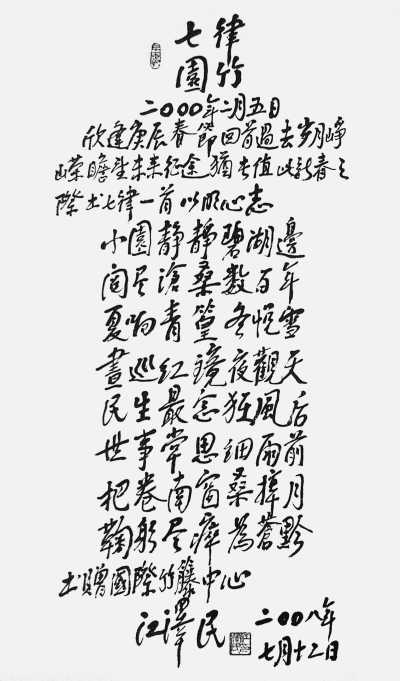 七律
園竹
二000年二月五日
欣逢庚辰春節回首過去岁月峥
嶸瞻望未来征途猶長值此新春之
際书七律一首以明心志
小園静静碧湖邊
阅尽滄桑数百年
夏响青篁冬悦雪
晝巡红镜夜觀天
民生最念狂風后
世事常思细雨前
把卷南窗桑梓月
鞠躬尽瘁為蒼黔
书贈國際竹藤中心
江澤民
二00八年
七月十二日